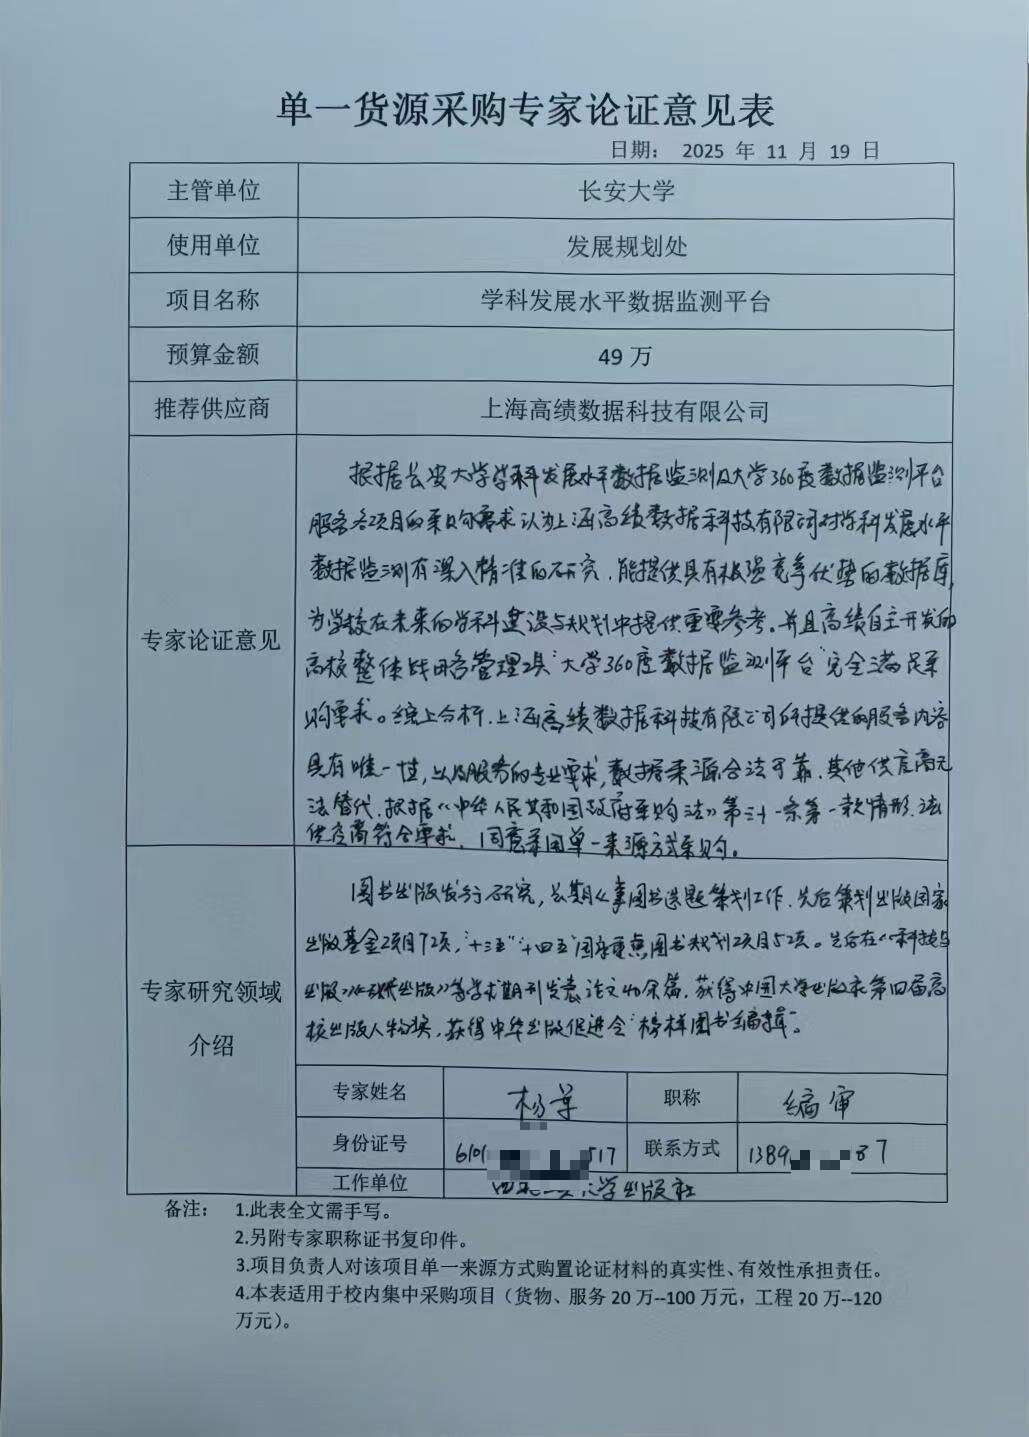 单一货源采购专家论证意见表
日期： 2025 年 11 月 19 日
主管单位 长安大学
使用单位 发展规划处
项目名称 学科发展水平数据监测平台
预算金额 49 万
推荐供应商 上海高绩数据科技有限公司
专家论证意见
根据长安大学学科发展水平数据监测及大学360度数据监测平台
服务各项目的采购需求认为上海高绩数据科技有限公司对学科发展水平
数据监测有深入精准的研究，能提供具有极强竞争优势的数据库，
为学校在未来的学科建设与规划中提供重要参考。并且高绩自主开发的
高校整体战略管理工具“大学360度数据监测平台”完全满足采
购要求。综上分析，上海高绩数据科技有限公司所提供的服务内容
具有唯一性，以及服务的专业要求，数据来源合法可靠，其他供应商无
法替代。根据《中华人民共和国政府采购法》第三十一条第一款情形，该
供应商符合要求，同意采用单一来源方式采购。
专家研究领域
介绍
图书出版发行研究，长期从事图书选题策划工作，先后策划出版国家
出版基金项目72项，“十三五”“十四五”国家重点图书规划项目52项。先后在《科技与
出版》《出版》等学术期刊发表论文40余篇，获得中国大学出版社第四届高
校出版人物奖，获得中华出版促进会“榜样图书编辑”。
专家姓名 杨 职称 编审
身份证号 610 517 联系方式 1389 87
工作单位 大学出版社
备注： 1.此表全文需手写。
2.另附专家职称证书复印件。
3.项目负责人对该项目单一来源方式购置论证材料的真实性、有效性承担责任。
4.本表适用于校内集中采购项目（货物、服务 20 万--100 万元，工程 20 万--120
万元）。